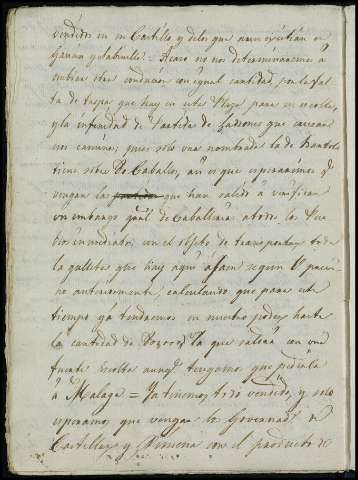 vendidos en su Castillo y de los que aun existían en
Gaucin y Sabinillo = Acaso no nos determinaremos á
embiar otra conducion con igual cantidad, por la fal
ta de tropa que hay en esta Plaza para su escolta,
y la infinidad de Partida de ladrones que cercan
los caminos, pues solo una nombrada la de
tiene sobre 80 Caballos, así es que esperaremos q.e
vengan las que han salido á verificar
un embargo gral. de Caballeria á todos los Pue
blos inmediatos, con el objeto de transportar toda
la galleta que hay aqui segun V. previ
no anteriormente, calculando que para este
tiempo ya tendremos en nuestro poder hasta
la cantidad de la que saldrá con una
fuerte escolta aunq.e tengamos que pedirla
á Malaga = Ya tenemos todo vendido, y solo
esperamos que vengan los Governad.s de
Castellar y Ximena con el producto de